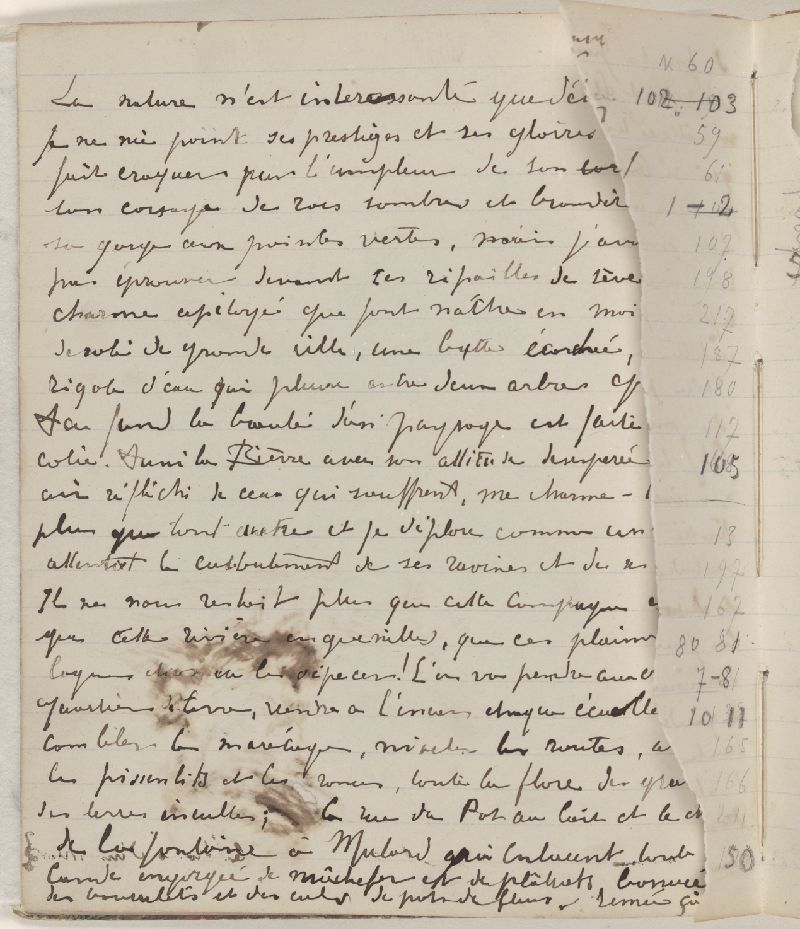 La nature n'est interessante que dé
Je ne nie point ses prestiges et ses gloires
fait craquer par l'ampleur de son
son corsage de rocs sombres et brandir
sa gorge aux pointes vertes, mais j'av
pas éprouver devant ces ripailles de sève
charme apitoyé que font naître en moi
desolé de grande ville, une butte écorchée,
rigole d'eau qui pleure entre deux arbres
Au fond la beauté d'un paysage est faite
colie. Aussi la Bièvre avec son attitude desesperée
air réfléchi de ceux qui souffrent, me charme
plus que tout autre et je déplore comme un
attentat le culbutement de ses ravines et de ses
Il ne nous restait plus que cette campagne
que cette rivière en guenilles, que ces plaines
loques et on les dépecer! L'on va pendre
quartier de terre, vendre à l'encan chaque écuelle
combler les marécages, niveler les routes, a
les pissenlits et les ronces, toute la flore des gra
des terres incultes; la rue du Pot au lait et le ch
de la fontaine à Mulard qui
lande engorgée de mâchefer et de plâtras, bossuée
des et des culs de pots de fleurs,
N. 60
102. 103
59
1 2
107
198
217
187
180
117
105
13
197
167
80 81
7-81
10 11
165
166
150